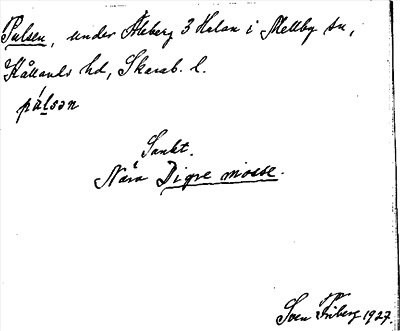 Pulsen, under Åleberg 3 Holan i Mellby sn,
Kållands hd, Skarab. l.
púlsən
Sankt.
Nära Digre mosse.
Sven Friberg 1927.